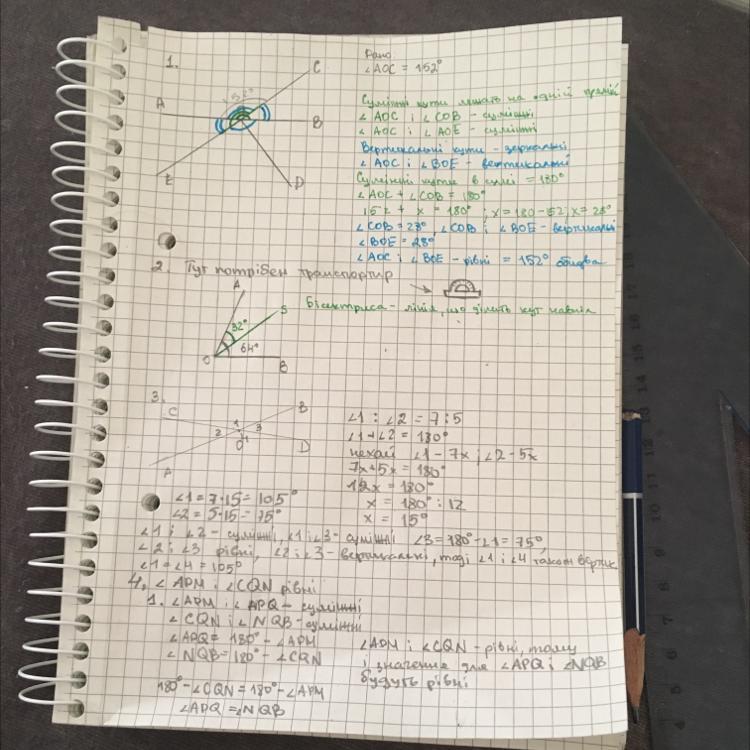 1.
C
152°
A
B
E
D
Дано
∠AOC = 152°
Суміжні кути лежать на одній прямій
∠AOC і ∠COB - суміжні
∠AOC і ∠AOE - суміжні
Вертикальні кути - зеркальні
∠AOC і ∠BOE - вертикальні
Суміжні кути в сумі = 180°
∠AOC + ∠COB = 180°
152 + x = 180°; x = 180 - 152; x = 28°
∠COB = 28°, ∠COB і ∠BOE - вертикальні
∠BOE = 28°
∠AOC і ∠BOE - рівні = 152° обидва
2. Тут потрібен транспортир
A
S
32°
64°
O
B
Бісектриса - лінія, що ділить кут навпіл
3.
C
B
1
2
3
4
O
D
A
∠1 : ∠2 = 7 : 5
∠1 + ∠2 = 180°
нехай ∠1 - 7x; ∠2 - 5x
7x + 5x = 180°
12x = 180°
x = 180° : 12
x = 15°
∠1 = 7·15 = 105°
∠2 = 5·15 = 75°
∠1 і ∠2 - суміжні, ∠1 і ∠3 - суміжні ∠3 = 180° - ∠1 = 75°
∠2 і ∠3 рівні, ∠2 і ∠3 - вертикальні, тоді ∠1 і ∠4 також вертик
∠1 = ∠4 = 105°
4. ∠APM і ∠CQN рівні
1. ∠APM і ∠APQ - суміжні
∠CQN і ∠NQB - суміжні
∠APQ = 180° - ∠APM
∠NQB = 180° - ∠CQN
∠APM і ∠CQN - рівні, тому
і значення для ∠APQ і ∠NQB
будуть рівні
180° - ∠CQN = 180° - ∠APM
∠APQ = ∠NQB